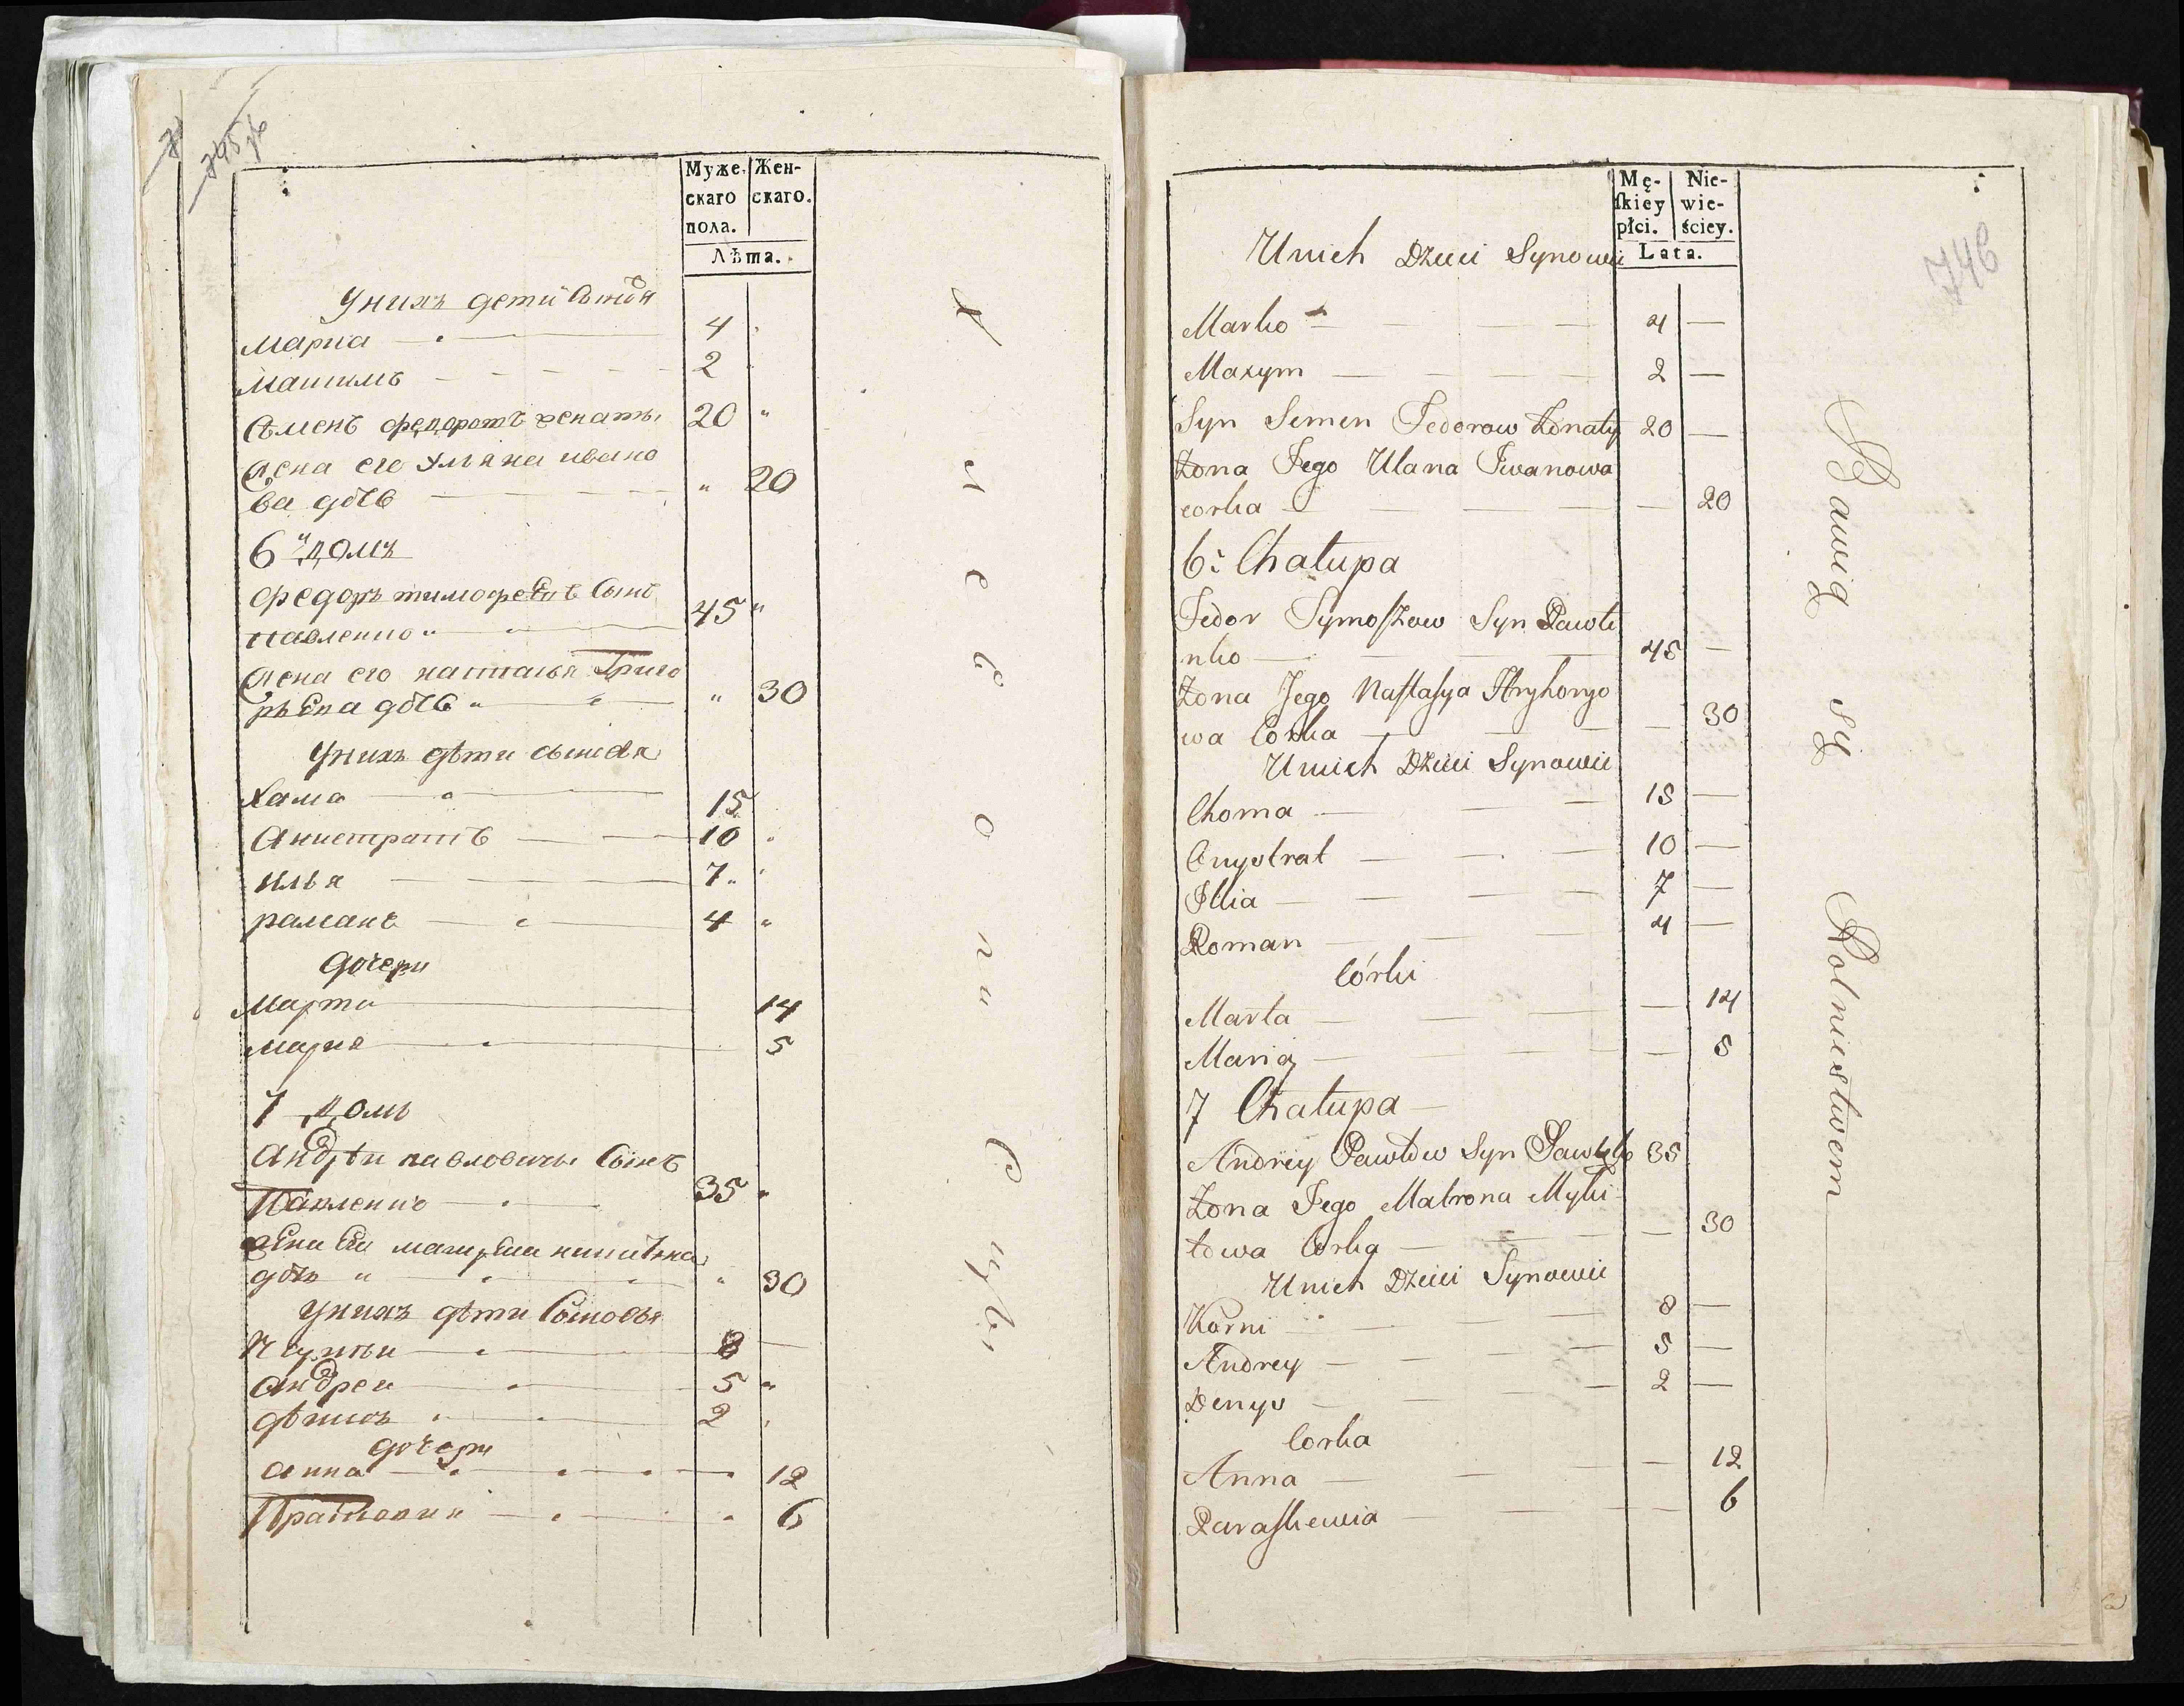 745 об
Муже-
скаго
пола.
Жен-
скаго.
Лѣта.
У нихъ дети Сынов.я
Марка 4
Машимъ 2
Семенъ Федоровъ женатъ 20 "
Жена его Ульяна ивано
ва дочь " 20
6й домъ
Федоръ тимофеевъ Сынъ
Павленко " 45 "
Жена его настасья Григо
рьева дочь " " 30
У нихъ дѣти сыновя
Хама 15
Анистратъ 10
Илья 7
раманъ 4 "
дочери
Марта 14
Мария 5
7 домъ
Андрѣи павловичь Сынъ
Павленко 35 "
дочь " " 30
У нихъ дѣти Сыновья
8
Андреи 5 "
дѣнисъ 2
дочери
анна 12
6
746
Mę-
ſkiey
płci.
Nie-
wie-
ściey.
Lata.
Unich Dzieci Synowie
Marko 4 —
Maxym 2 —
Syn Semen Fedorow Żonaty 20 —
Żona Jego Ulana Iwanowa
corka — 20
6: Chałupa
Fedor Tymoſzow Syn Pawle
nko 45 —
Żona Jego Naſtaſya Hryhoryo
wa Corka — 30
Unich Dzieci Synowie
Choma 15 —
Onystrat 10 —
Illia 7 —
Roman 4 —
Córki
Marta — 14
Maria — 5
7 Chałupa
Andrey Pawłow Syn 35
Żona Jego Matrona Myki-
towa Corka — 30
Unich Dzieci Synowie
Karni 8 —
Andrey 5 —
Denys 2 —
Corka
Anna — 12
Paraſkewia — 6
Bawią się Rolnictwem